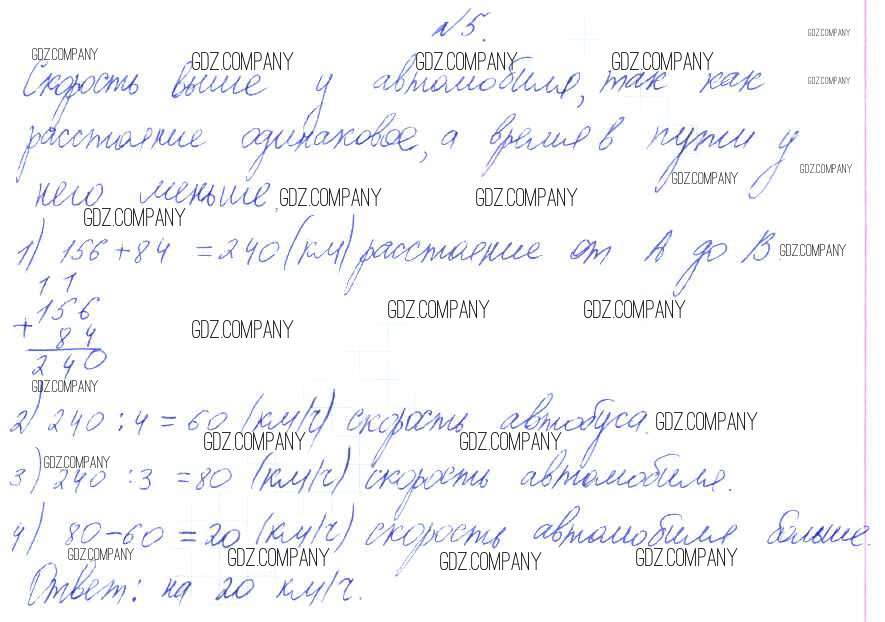 №5.
GDZ.COMPANY
GDZ.COMPANY GDZ.COMPANY GDZ.COMPANY GDZ.COMPANY
Скорость выше у автомобиля, так как GDZ.COMPANY
расстояние одинаковое, а время в пути у
GDZ.COMPANY GDZ.COMPANY
него меньше. GDZ.COMPANY GDZ.COMPANY
GDZ.COMPANY
1) 156+84 = 240 (км) расстояние от А до В. GDZ.COMPANY
1 1
156 GDZ.COMPANY GDZ.COMPANY
+ 84 GDZ.COMPANY
240
GDZ.COMPANY
2) 240 : 4 = 60 (км/ч) скорость автобуса. GDZ.COMPANY
GDZ.COMPANY GDZ.COMPANY
GDZ.COMPANY
3) 240 : 3 = 80 (км/ч) скорость автомобиля.
4) 80-60 = 20 (км/ч) скорость автомобиля больше.
GDZ.COMPANY GDZ.COMPANY GDZ.COMPANY GDZ.COMPANY
Ответ: на 20 км/ч.